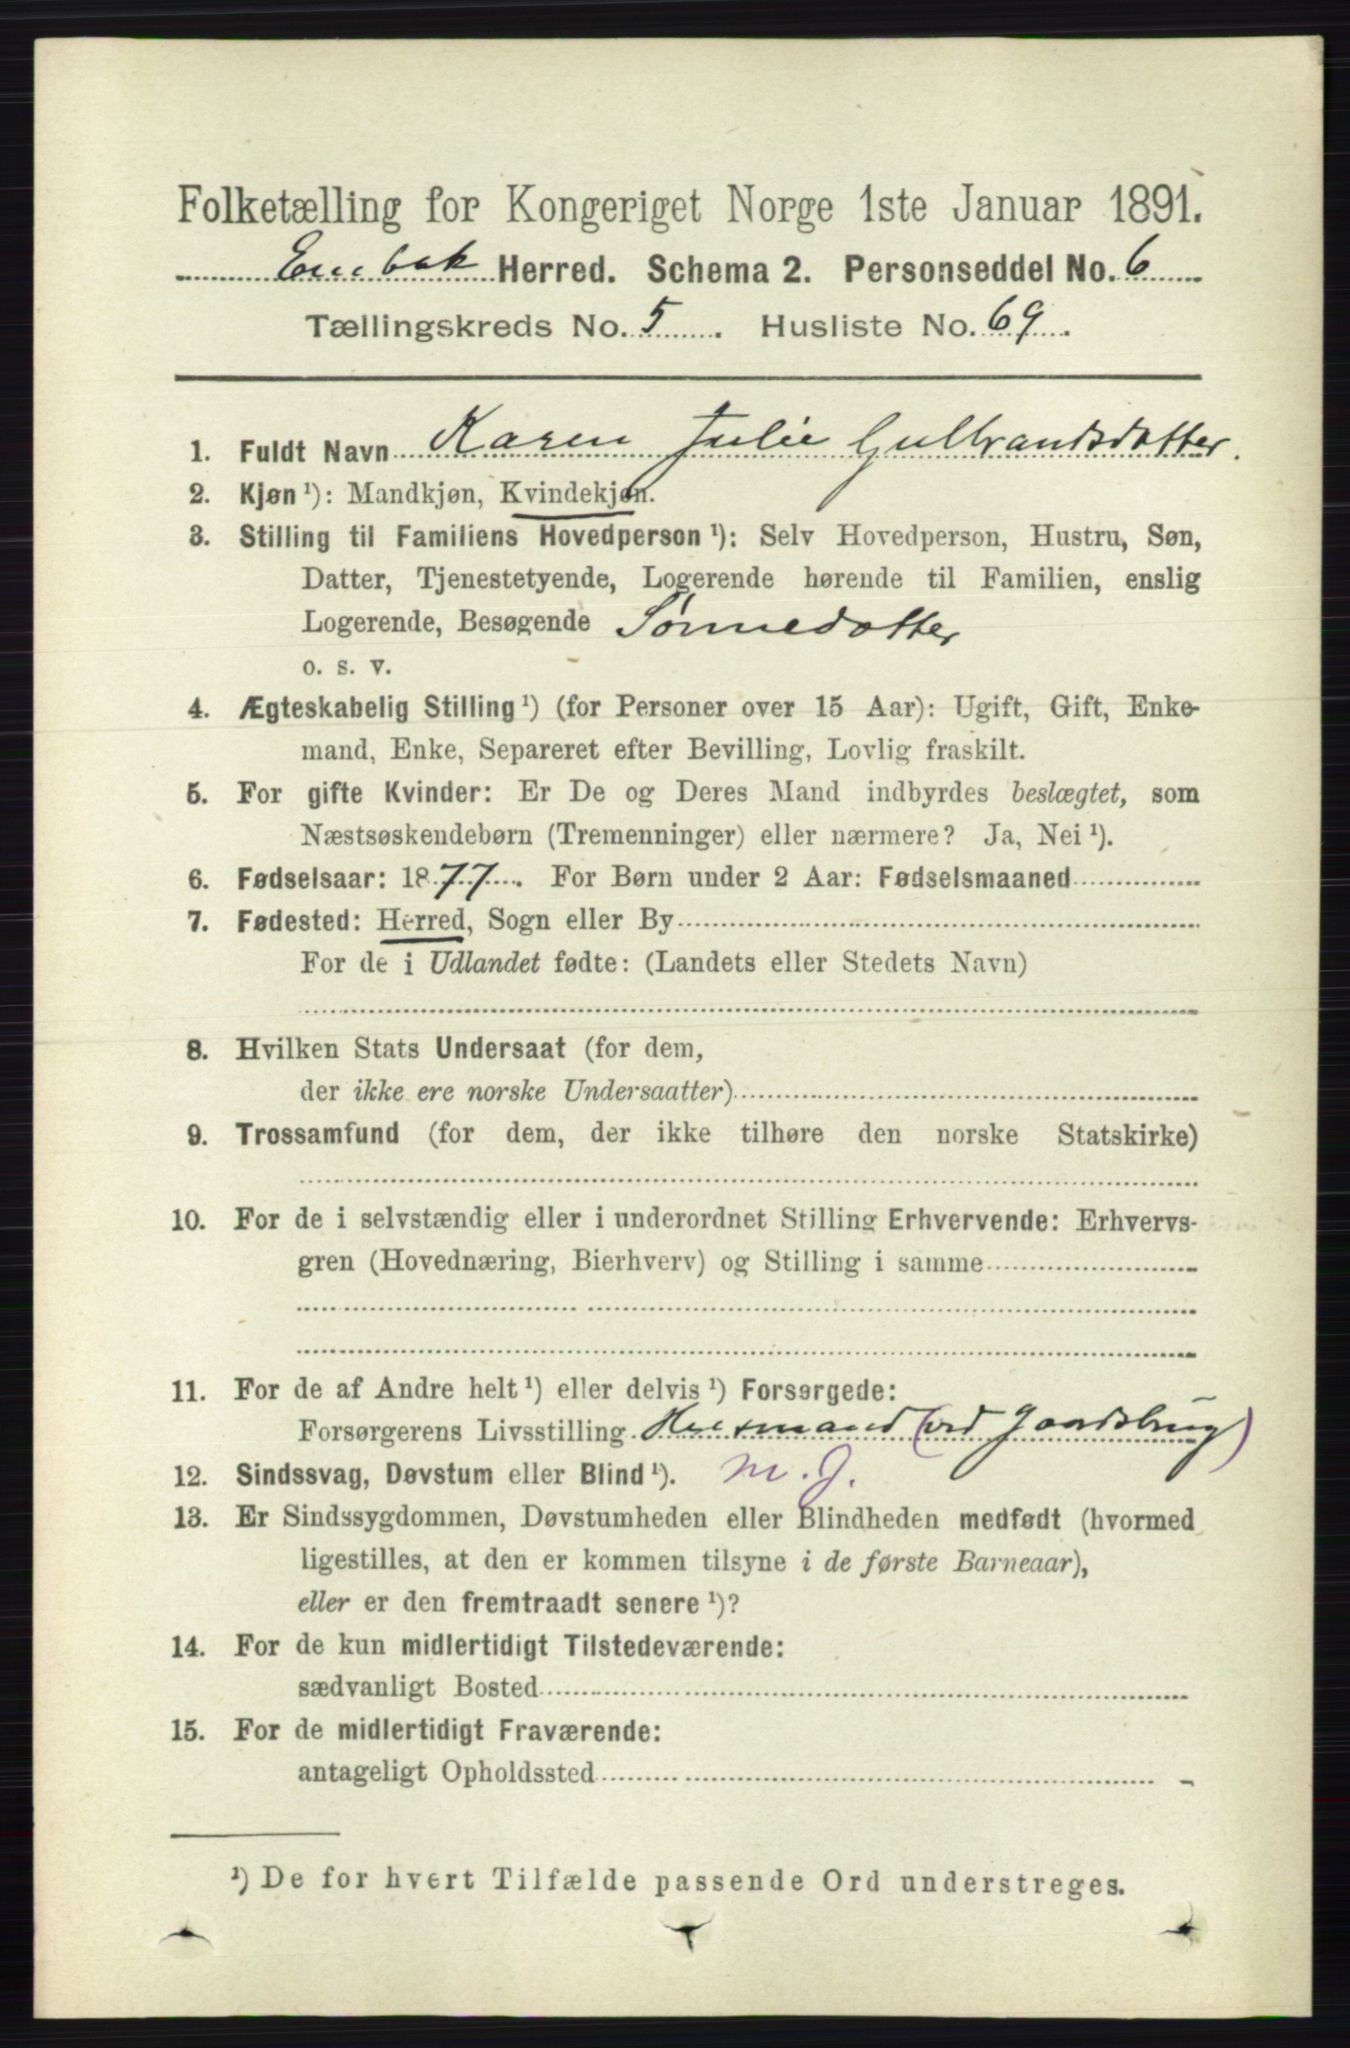 Folketælling for Kongeriget Norge 1ste Januar 1891.
Enebak Herred. Schema 2. Personseddel No. 6
Tællingskreds No. 5. Husliste No. 69.
1. Fuldt Navn Karen Julie Gulbrandsdatter.
2. Kjøn ¹): Mandkjøn, Kvindekjøn.
3. Stilling til Familiens Hovedperson ¹): Selv Hovedperson, Hustru, Søn,
Datter, Tjenestetyende, Logerende hørende til Familien, enslig
Logerende, Besøgende Sønnedatter
o. s. v.
4. Ægteskabelig Stilling ¹) (for Personer over 15 Aar): Ugift, Gift, Enke-
mand, Enke, Separeret efter Bevilling, Lovlig fraskilt.
5. For gifte Kvinder: Er De og Deres Mand indbyrdes beslægtet, som
Næstsøskendebørn (Tremenninger) eller nærmere? Ja, Nei ¹).
6. Fødselsaar: 1877. For Børn under 2 Aar: Fødselsmaaned
7. Fødested: Herred, Sogn eller By
For de i Udlandet fødte: (Landets eller Stedets Navn)
8. Hvilken Stats Undersaat (for dem,
der ikke ere norske Undersaatter)
9. Trossamfund (for dem, der ikke tilhøre den norske Statskirke)
10. For de i selvstændig eller i underordnet Stilling Erhvervende: Erhvervs-
gren (Hovednæring, Bierhverv) og Stilling i samme
11. For de af Andre helt ¹) eller delvis ¹) Forsørgede:
Forsørgerens Livsstilling Husmand (ved Gaardsbrug)
12. Sindssvag, Døvstum eller Blind ¹). m. J.
13. Er Sindssygdommen, Døvstumheden eller Blindheden medfødt (hvormed
ligestilles, at den er kommen tilsyne i de første Barneaar),
eller er den fremtraadt senere ¹)?
14. For de kun midlertidigt Tilstedeværende:
sædvanligt Bosted
15. For de midlertidigt Fraværende:
antageligt Opholdssted
¹) De for hvert Tilfælde passende Ord understreges.